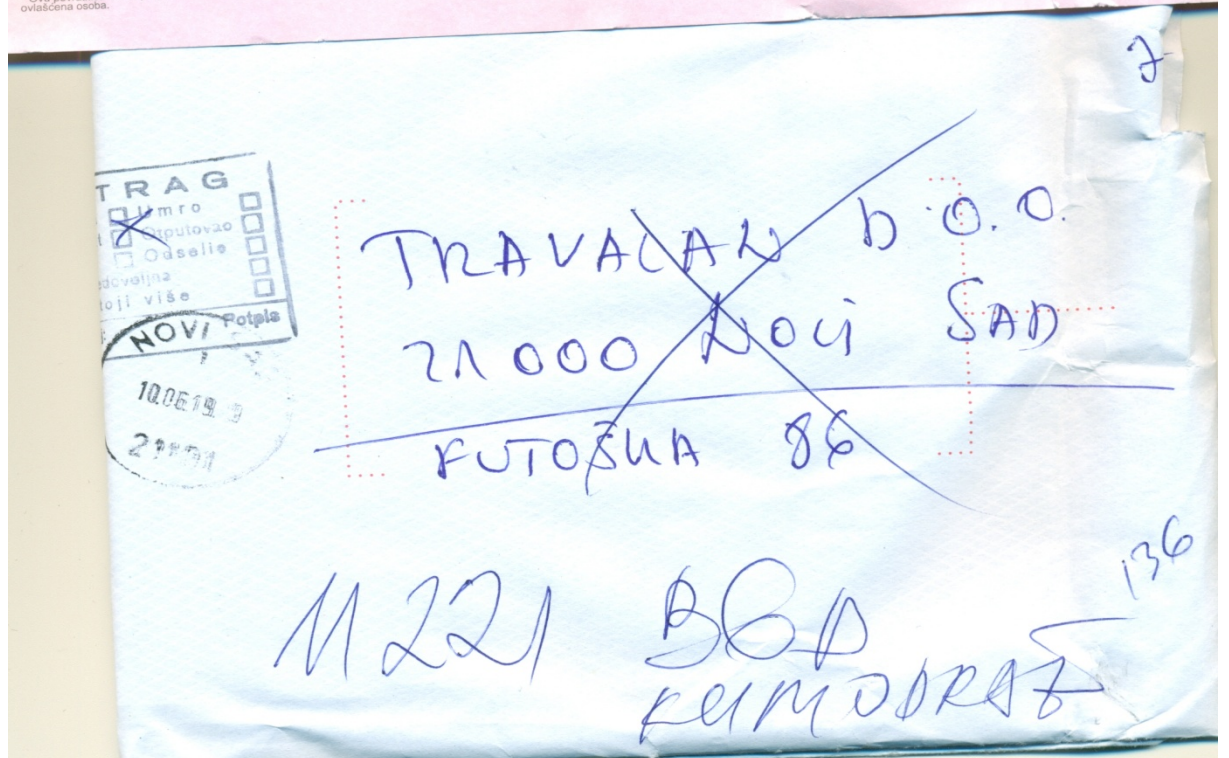 ovlašćena osoba.
7
TRAG
Umro
Otputovao
Odselio
toji više
Potpis
NOVI
10.06.19. 9
TRAVACAN D.O.O.
21000 NOCI SAD
FUTOŠKA 86
136
11221 BGD
KUMODRAŽ